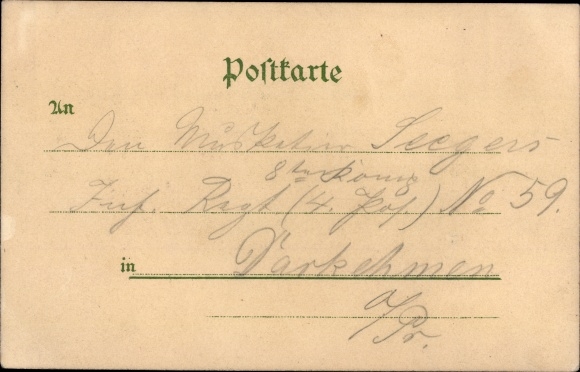 Postkarte
An
Den Musketier Seegers
8te Komp
Inf. Regt (4. Pos.) No 59.
in Darkehmen
O/Pr.